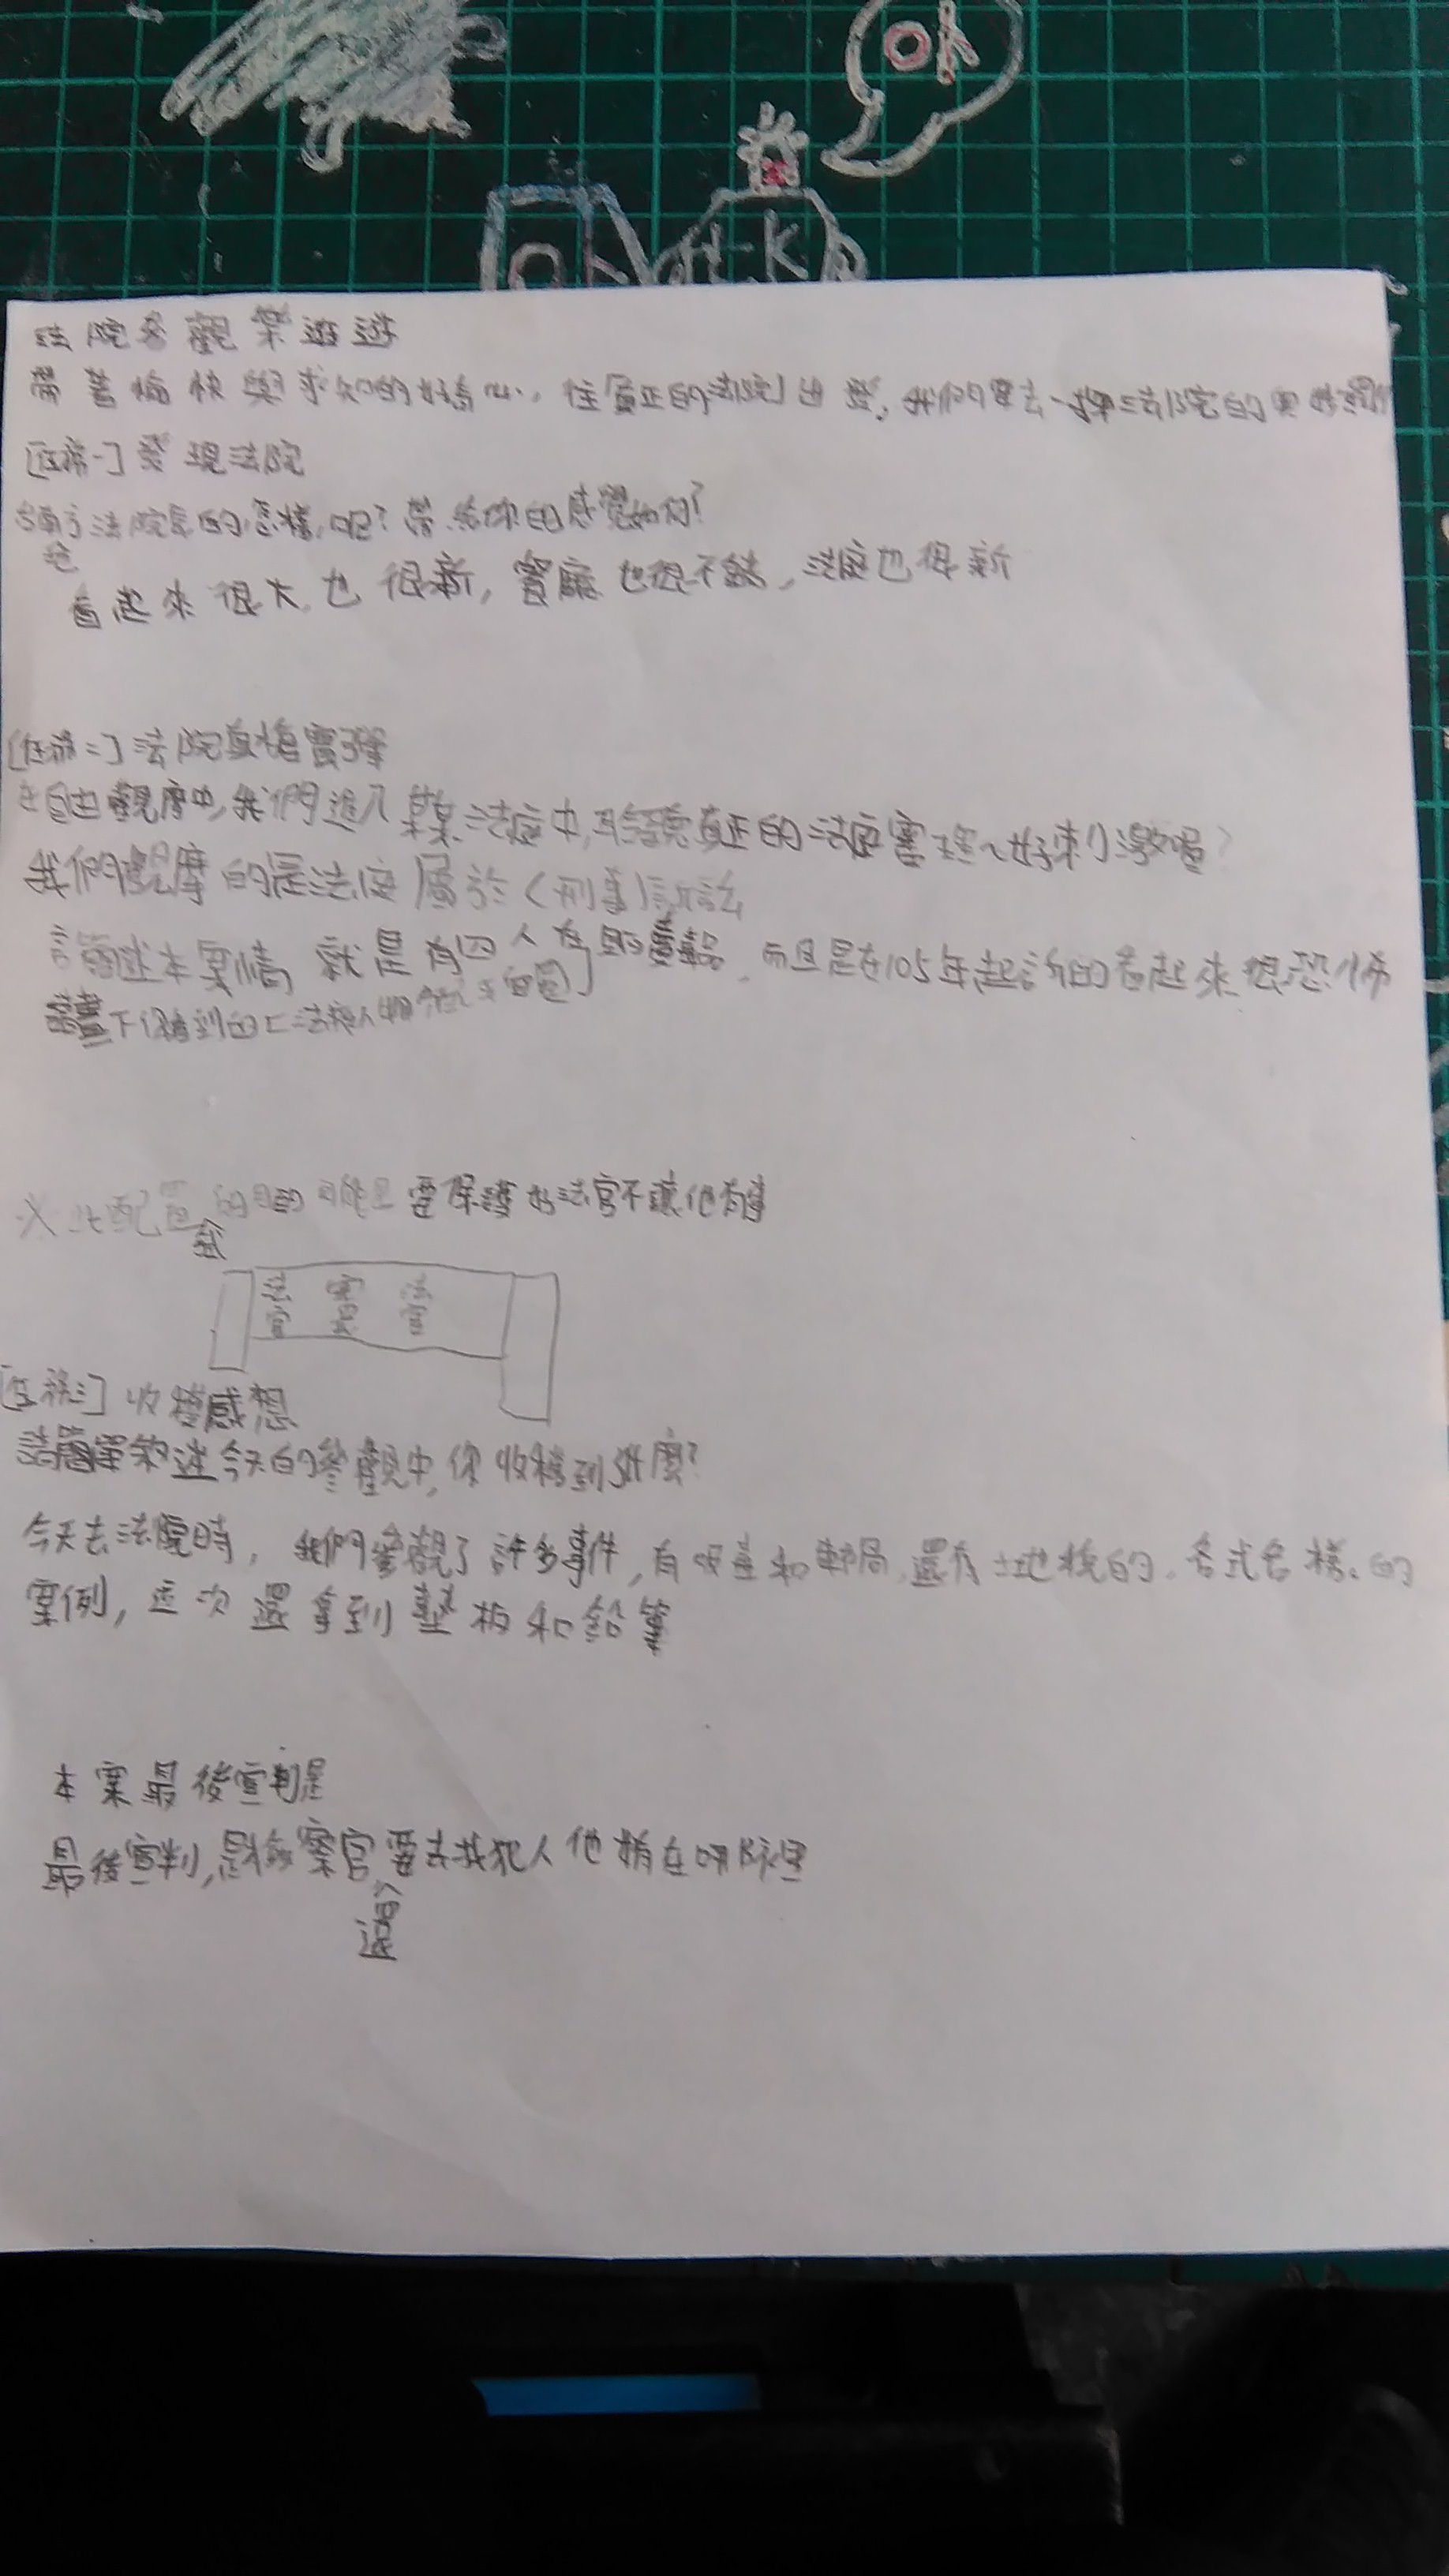 OK
OK
法院參觀樂遊遊
帶著愉快與求知的好奇心，往真正的法院出發，我們要去一探法院的奧妙
[任務一] 發現法院
法院長的怎樣呢？帶給你的感覺如何？
看起來很大也很新，餐廳也很不錯，法庭也很新
[任務二] 法院真槍實彈
在自由觀摩中，我們進入某某法庭中，聆聽真正的法庭審理～好刺激喔？
我們觀摩的是法庭屬於（刑事）訴訟
請簡述本案情 就是有四人在販賣毒品，而且是在105年起訴的看起來很恐怖
請畫下你看到的［法庭人物
※此配置的目的可能是要保護好法官不讓他有事
我
法官 審長 法官
[任務三] 收穫感想
請簡單敘述今天的參觀中，你收穫到什麼？
今天去法院時，我們參觀了許多事件，有吸毒和 還有土地稅的，各式各樣的
案例，這次還拿到墊板和鉛筆
本案最後宣判是
最後宣判，是檢察官要去找犯人他躲在哪裡
還